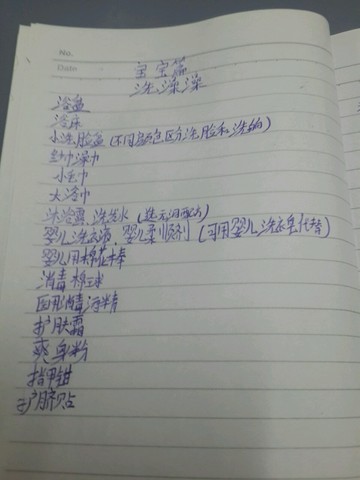 No.
Date
宝宝篇
洗澡澡
浴盆
浴床
小洗脸盆（不同颜色区分洗脸和洗屁）
纱巾澡巾
小毛巾
大浴巾
沐浴露 洗发水（选无泪配方）
婴儿洗衣液、婴儿柔顺剂（可用婴儿洗衣皂代替）
婴儿用棉花棒
消毒棉球
医用消毒酒精
护肤霜
爽身粉
指甲钳
护脐贴